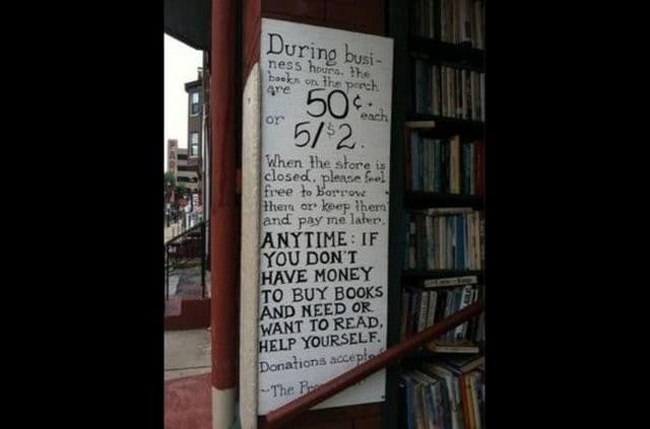 During busi-
ness hours, the
books on the porch
are 50¢ each
or 5/$2.
When the store is
closed, please feel
free to Borrow
them or keep them
and pay me later.
ANYTIME: IF
YOU DON'T
HAVE MONEY
TO BUY BOOKS
AND NEED OR
WANT TO READ,
HELP YOURSELF.
Donations
~The